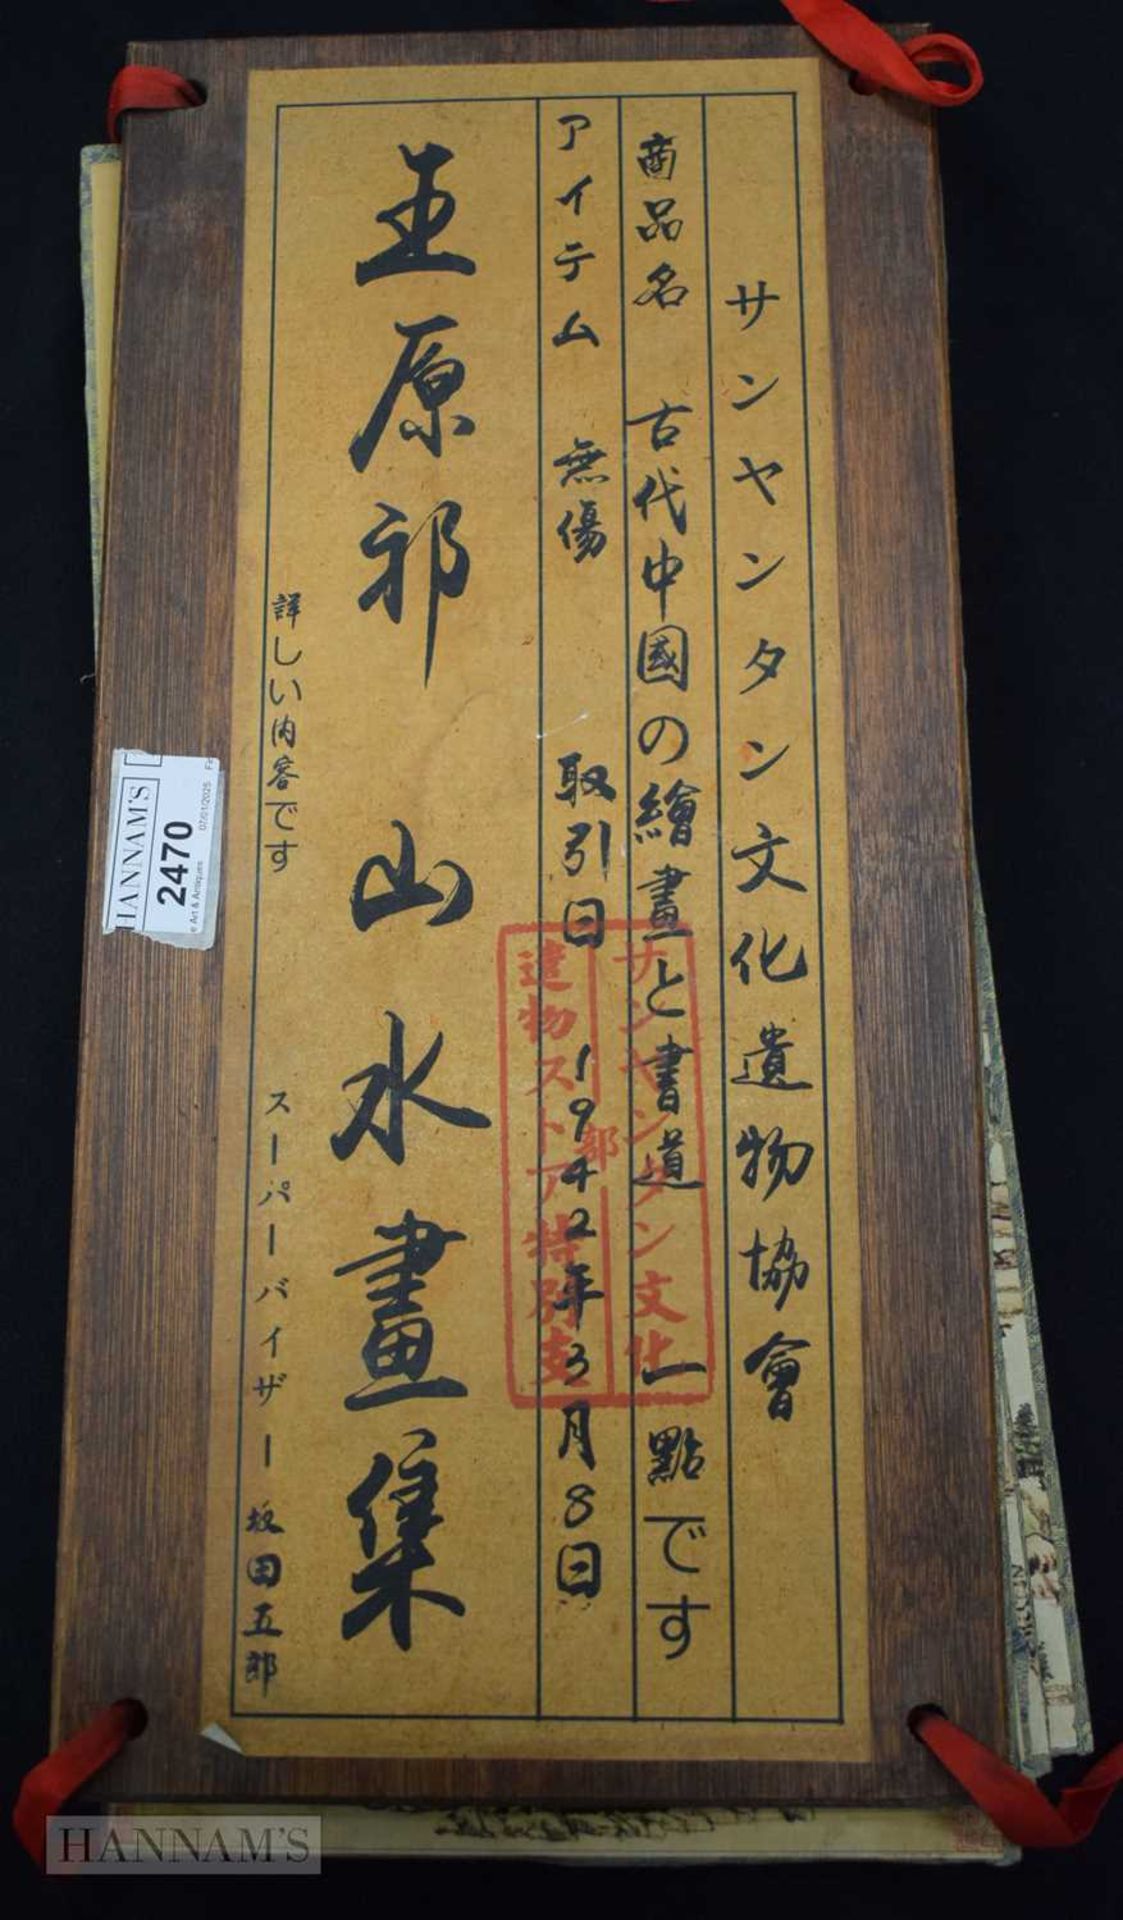 サンヤンタン文化遺物協會
商品名 古代中國の繪畫と書道 一點です
アイテム 無傷 取引日 1942年3月8日
王原祁山水畫集
詳しい内客です スーパーバイザー 坂田五郎
サンヤンタン文化
部
遺物ストア特別支
HANNAM'S
2470
07/01/2025
e Art & Antiques
HANNAM'S